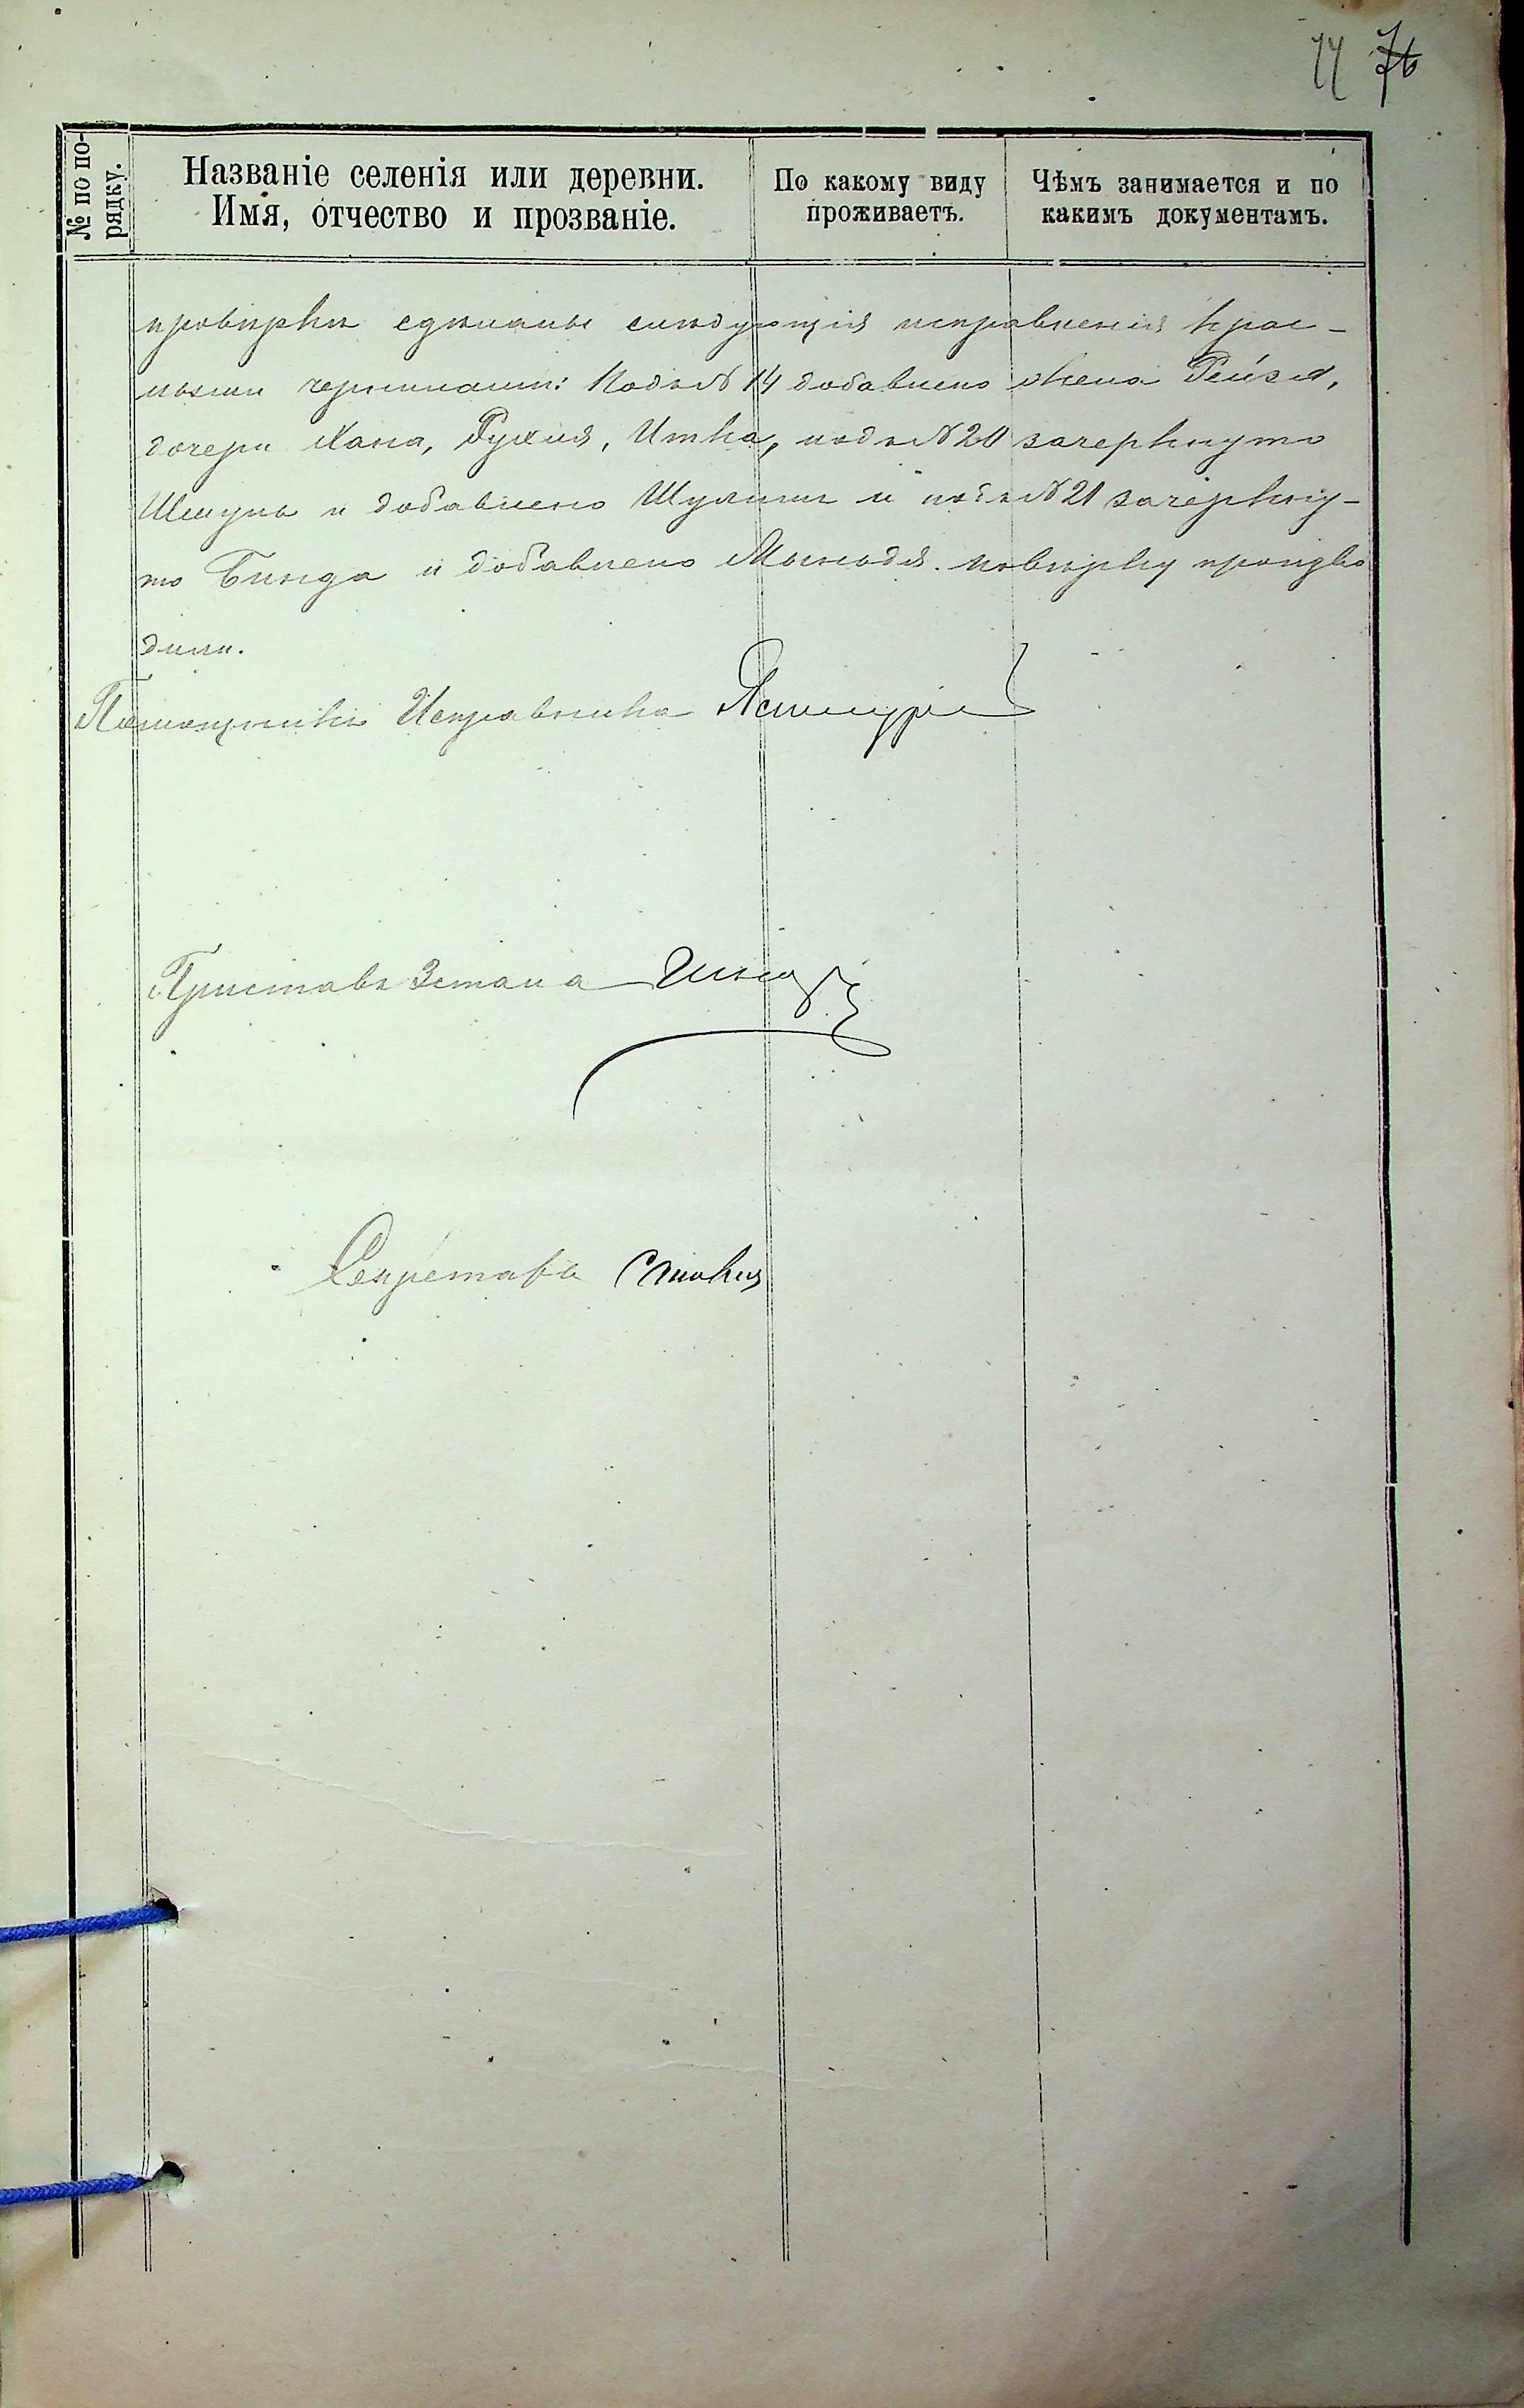 77 76
№ по по-
рядку.
Названіе селенія или деревни.
Имя, отчество и прозваніе.
По какому виду
проживаетъ.
Чѣмъ занимается и по
какимъ документамъ.
провѣрки сдѣланы слѣдующія исправленія крас-
ными чернилами: Подъ № 14 добавлено жена Рейзя,
дочери Хана, Рухля, Итка, подъ № 20 зачеркнуто
и добавлено Шулимъ и подъ № 21 зачеркну-
то и добавлено повѣрку произво
дили.
Помощникъ Исправника
Приставъ 3 стана
Секретарь